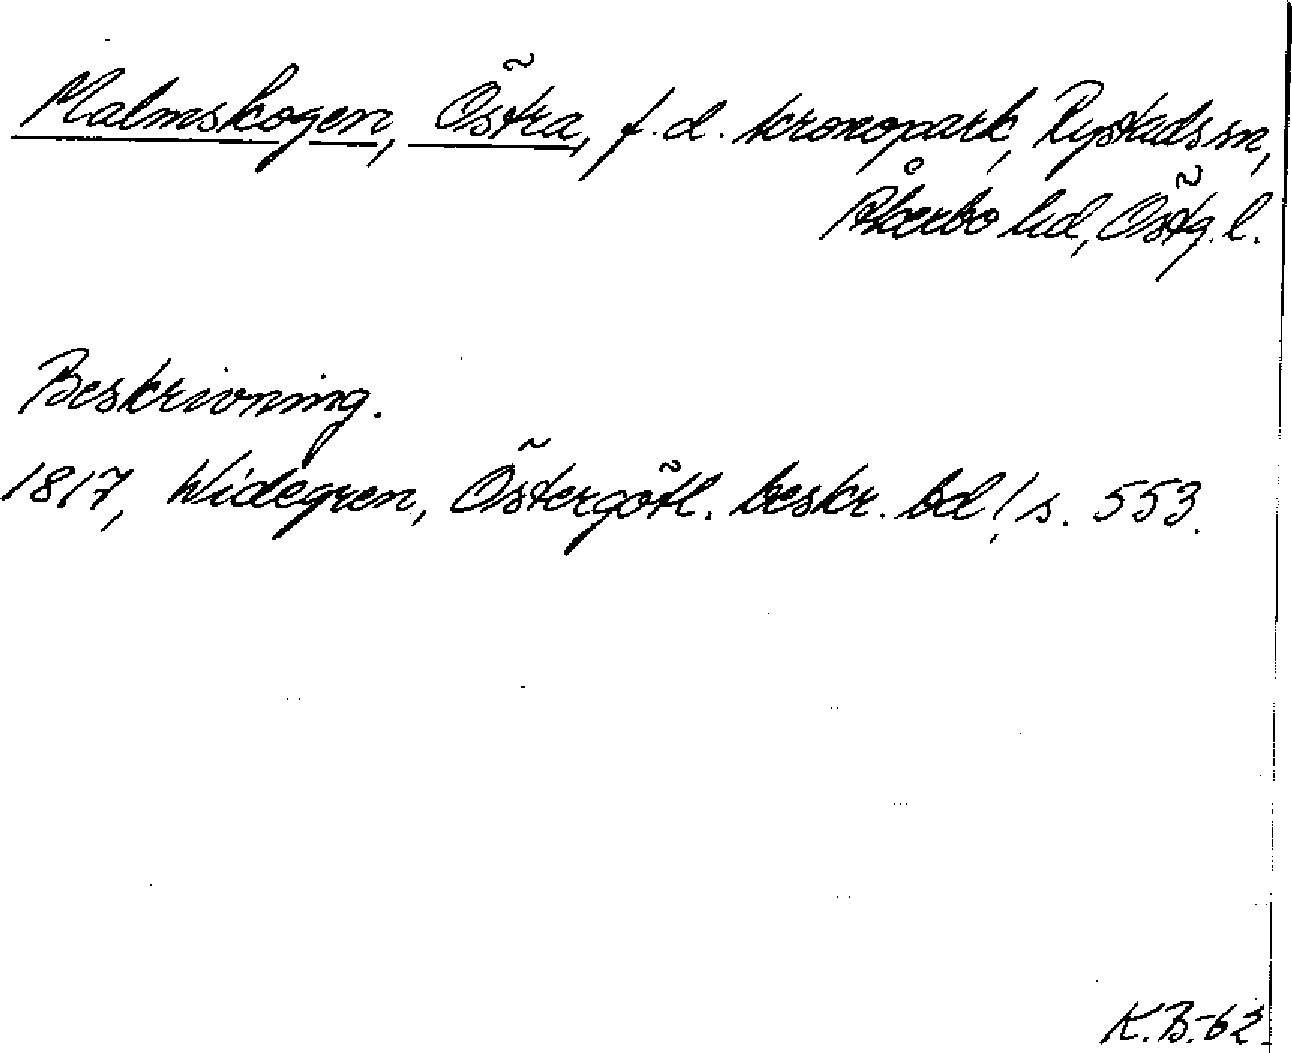 Malmskogen, Östra, f.d. kronopark, Rystads sn,
Åkerbo hd, Östg. l.
Beskrivning.
1817, Widegren, Östergötl. beskr. bd 1, s. 553.
K.B.-62.